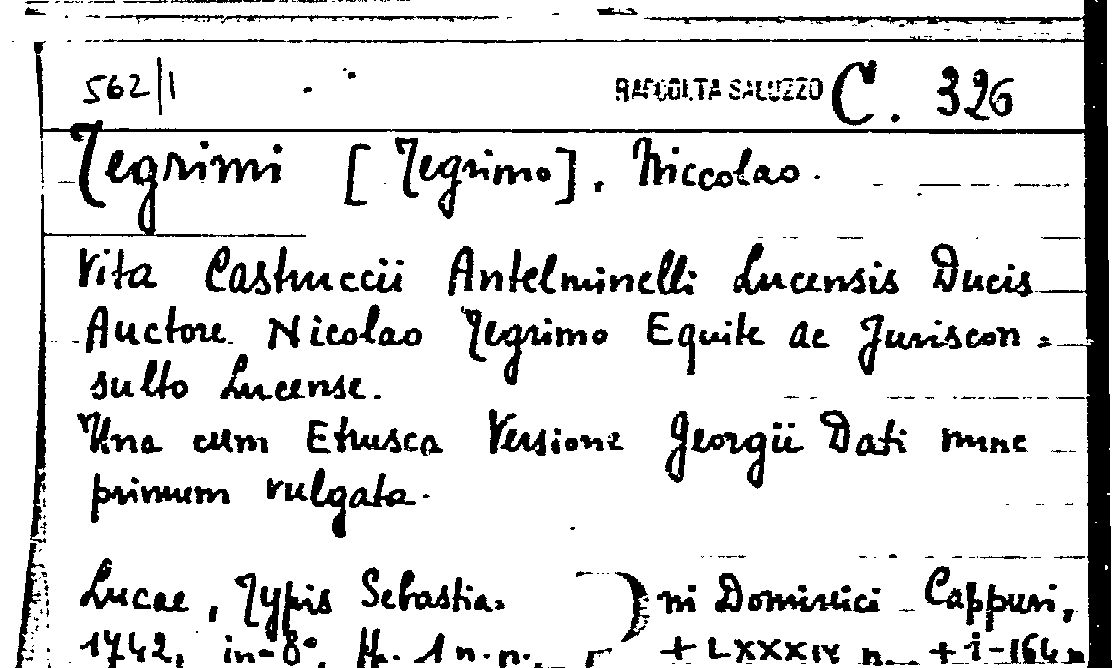 562/1 RACCOLTA SALUZZO C. 326
Tegrimi [Tegrimo], Niccolao.
Vita Castruccii Antelminelli Lucensis Ducis
Auctore Nicolao Tegrimo Equite ac Juriscon=
sulto Lucense.
Una cum Etrusca Versione Georgii Dati nunc
primum vulgata.
Lucae, Typis Sebastia= ni Dominici Cappuri,
1742, in-8°, ff. 1 n.n., + LXXXIV n., + 1-164 n